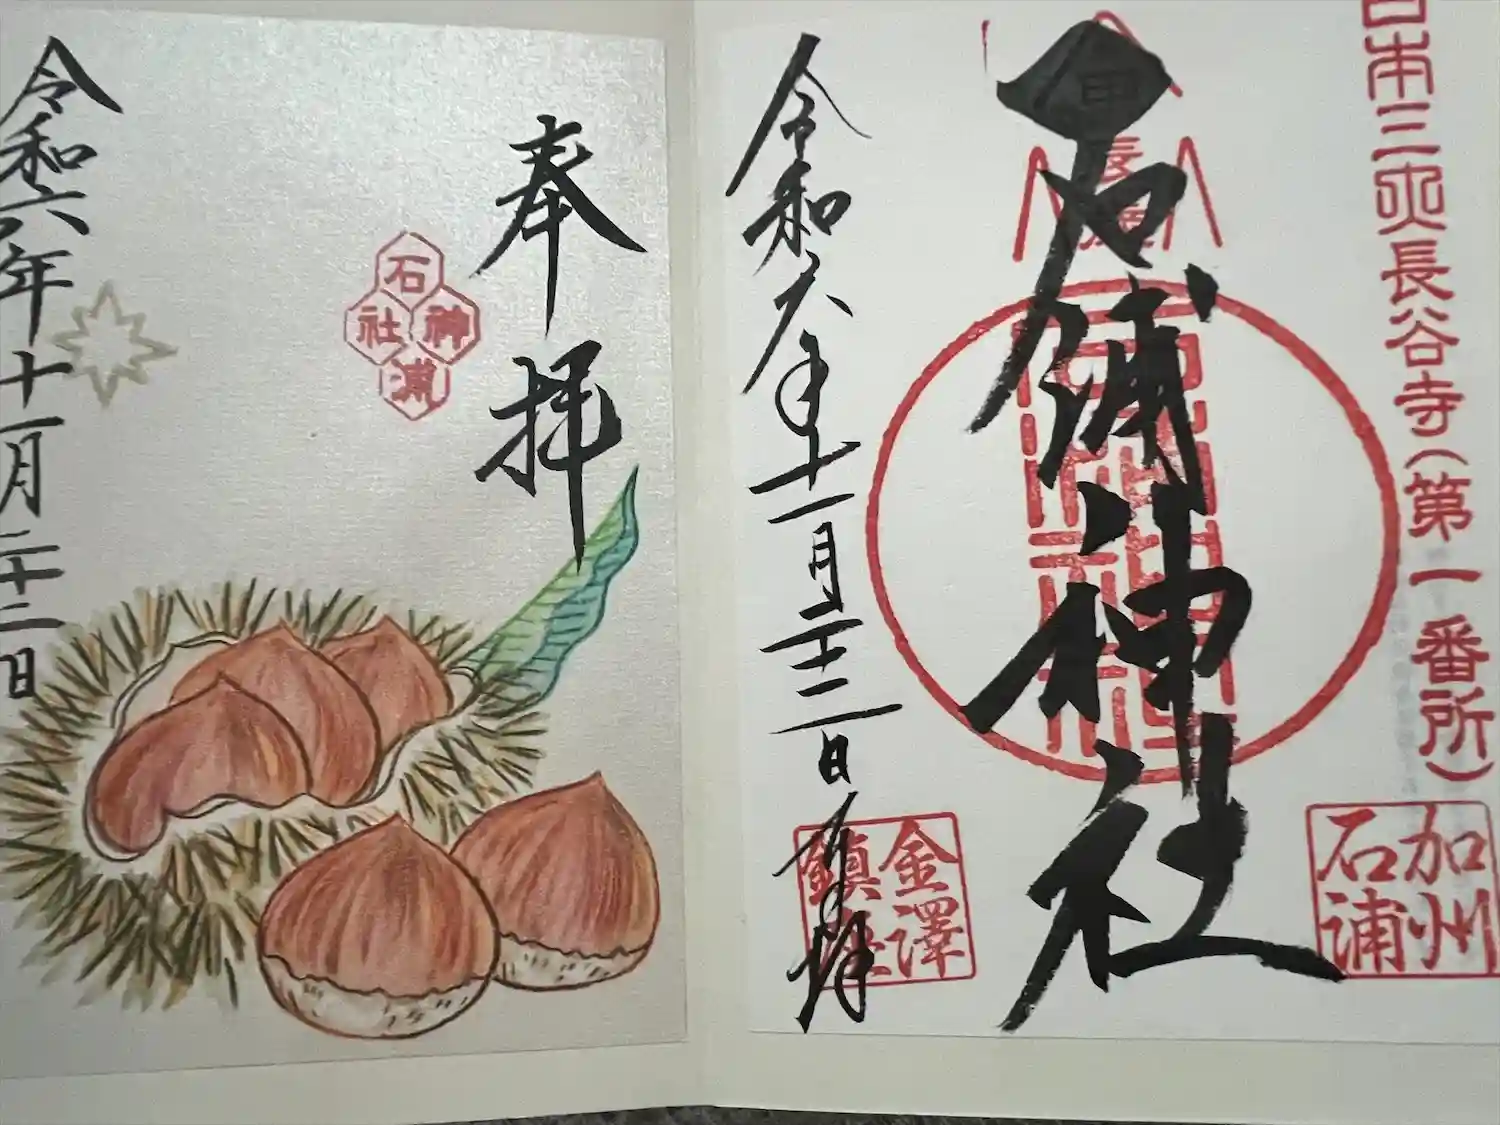 日本三大長谷寺(第一番所)
加州
石浦
石浦神社
長谷
令和六年十一月二十二日奉拝
金澤
鎮座
奉拝
石浦神社
令和六年十一月二十二日